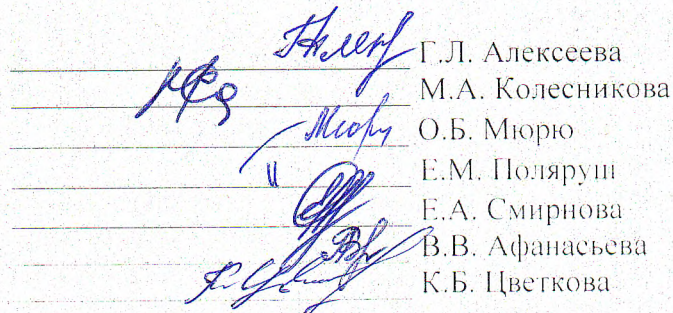 Г.Л. Алексеева
М.А. Колесникова
О.Б. Мюрю
Е.М. Поляруш
Е.А. Смирнова
В.В. Афанасьева
К.Б. Цветкова